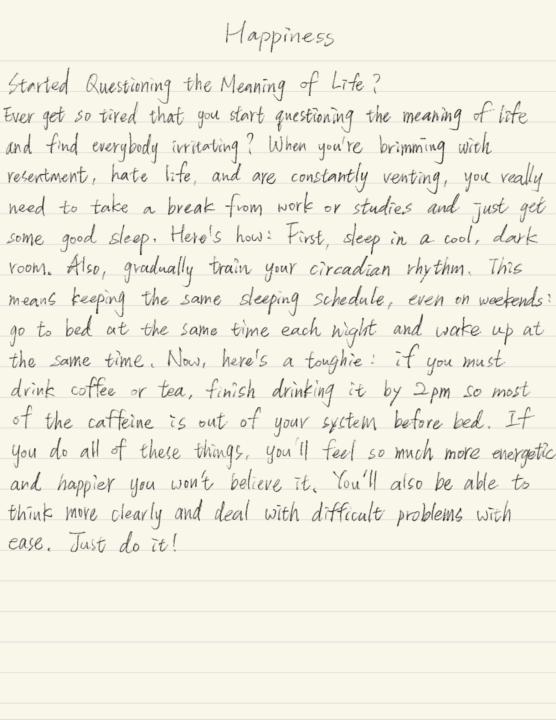 Happiness
Started Questioning the Meaning of Life?
Ever get so tired that you start questioning the meaning of life
and find everybody irritating? When you're brimming with
resentment, hate life, and are constantly venting, you really
need to take a break from work or studies and just get
some good sleep. Here's how: First, sleep in a cool, dark
room. Also, gradually train your circadian rhythm. This
means keeping the same sleeping schedule, even on weekends:
go to bed at the same time each night and wake up at
the same time. Now, here's a toughie: if you must
drink coffee or tea, finish drinking it by 2pm so most
of the caffeine is out of your system before bed. If
you do all of these things, you'll feel so much more energetic
and happier you won't believe it. You'll also be able to
think more clearly and deal with difficult problems with
ease. Just do it!